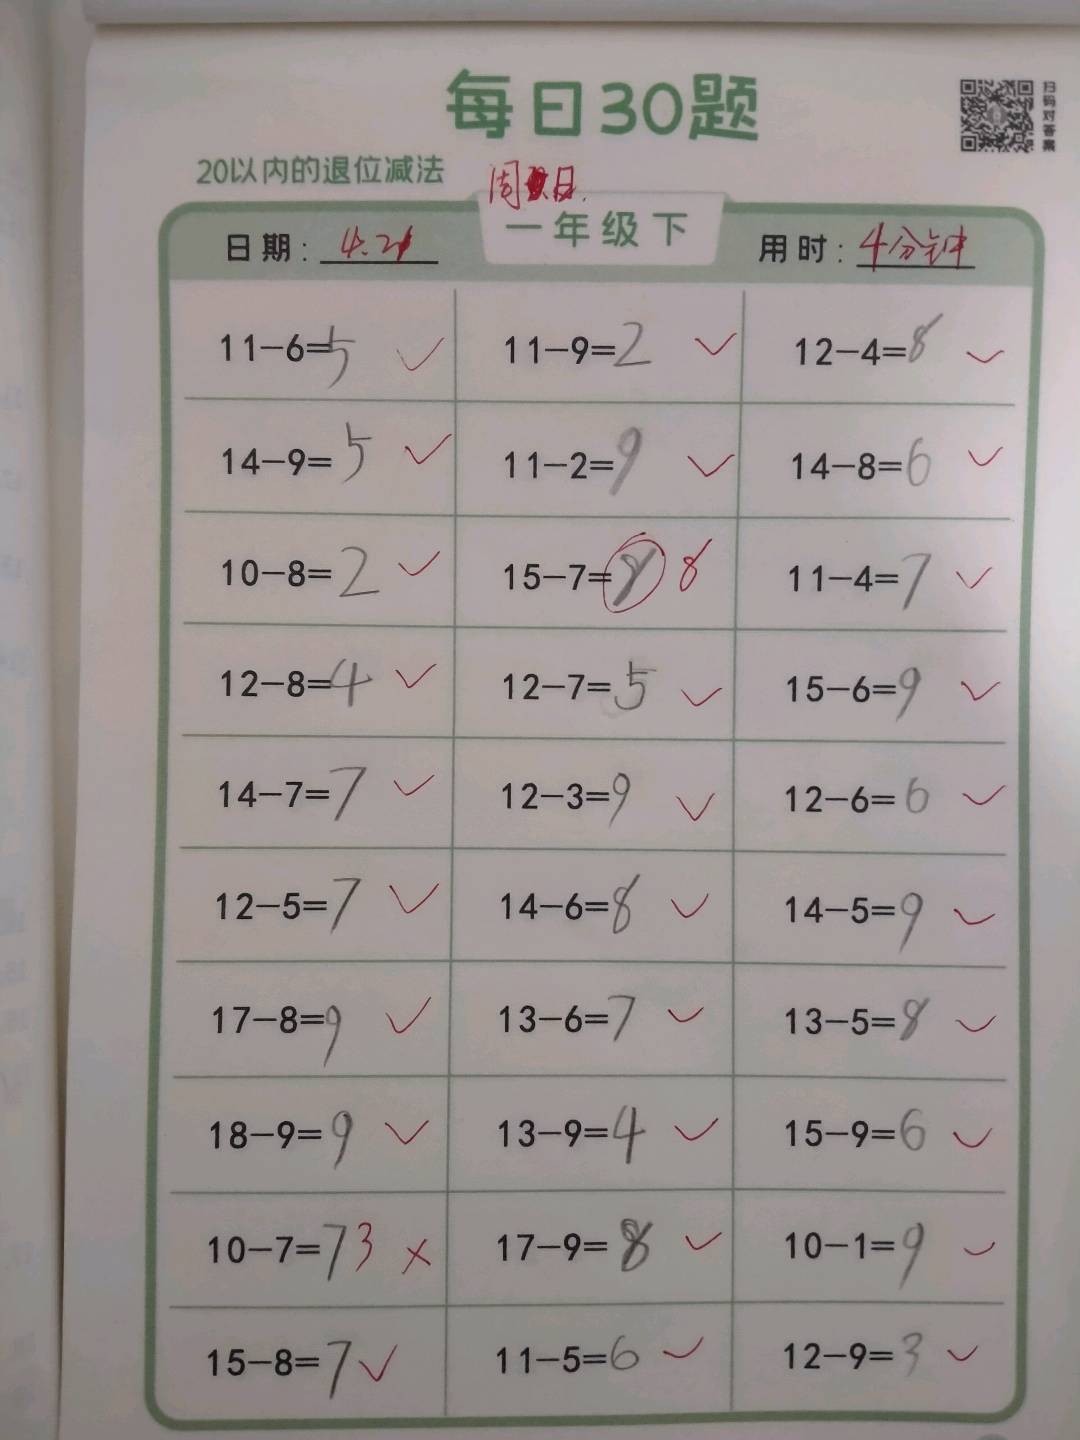 每日30题
扫码对答案
20以内的退位减法
周日
一年级下
日期：4.21
用时：4分钟
11-6=5 11-9=2 12-4=8
14-9=5 11-2=9 14-8=6
10-8=2 15-7=8 8 11-4=7
12-8=4 12-7=5 15-6=9
14-7=7 12-3=9 12-6=6
12-5=7 14-6=8 14-5=9
17-8=9 13-6=7 13-5=8
18-9=9 13-9=4 15-9=6
10-7=7 3 17-9=8 10-1=9
15-8=7 11-5=6 12-9=3